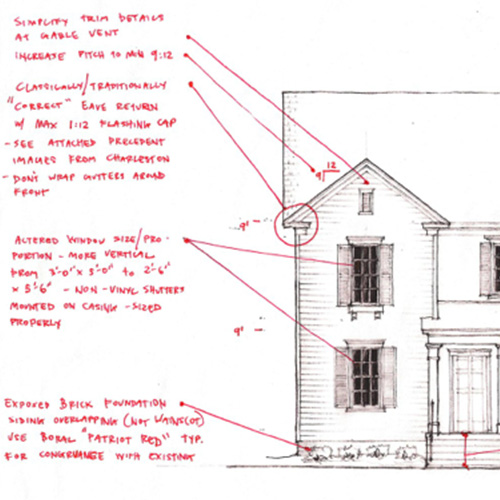 SIMPLIFY TRIM DETAILS
AT GABLE VENT
INCREASE PITCH TO MIN 9:12
CLASSICALLY/TRADITIONALLY
"CORRECT" EAVE RETURN
W/ MAX 1:12 FLASHING CAP
- SEE ATTACHED PRECEDENT
IMAGES FROM CHARLESTON
- DON'T WRAP GUTTERS AROUND
FRONT
12
9
9'
ALTERED WINDOW SIZE/PRO-
PORTION - MORE VERTICAL
FROM 3'-0" x 5'-0" TO 2'-6"
x 5'-6" - NON-VINYL SHUTTERS
MOUNTED ON CASING - SIZED
PROPERLY
9'
EXPOSED BRICK FOUNDATION
SIDING OVERLAPPING (NOT WAINSCOT)
USE BORAL "PATRIOT RED" TYP.
FOR CONGRUANCE WITH EXISTING